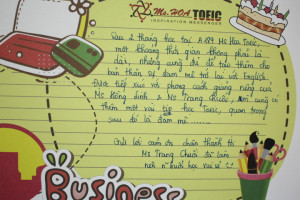 Ms.HOA TOEIC
INSPIRATION MESSENGER
Sau 2 tháng học tại A Ms Hoa Toeic,
một khoảng thời gian không phải là
dài, nhưng cũng đủ để tạo thêm cho
bản thân sự đam mê trở lại với English
Được tiếp xúc với phong cách giảng riêng của
Ms Hồng Linh & Ms Trang Chuối, em cũng có
thêm một vài tip học Toeic, quan trọng
sau đó là đam mê
Gửi lời cảm ơn chân thành tới
Ms Trang Chuối đã làm
nên n buổi học vui vẻ
Business